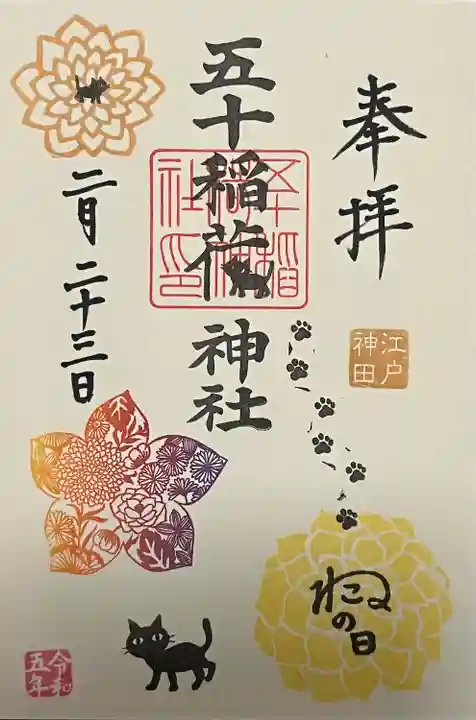 奉拝
江戸
神田
ねこの日
五十稲荷神社
二月二十三日
令和
五年